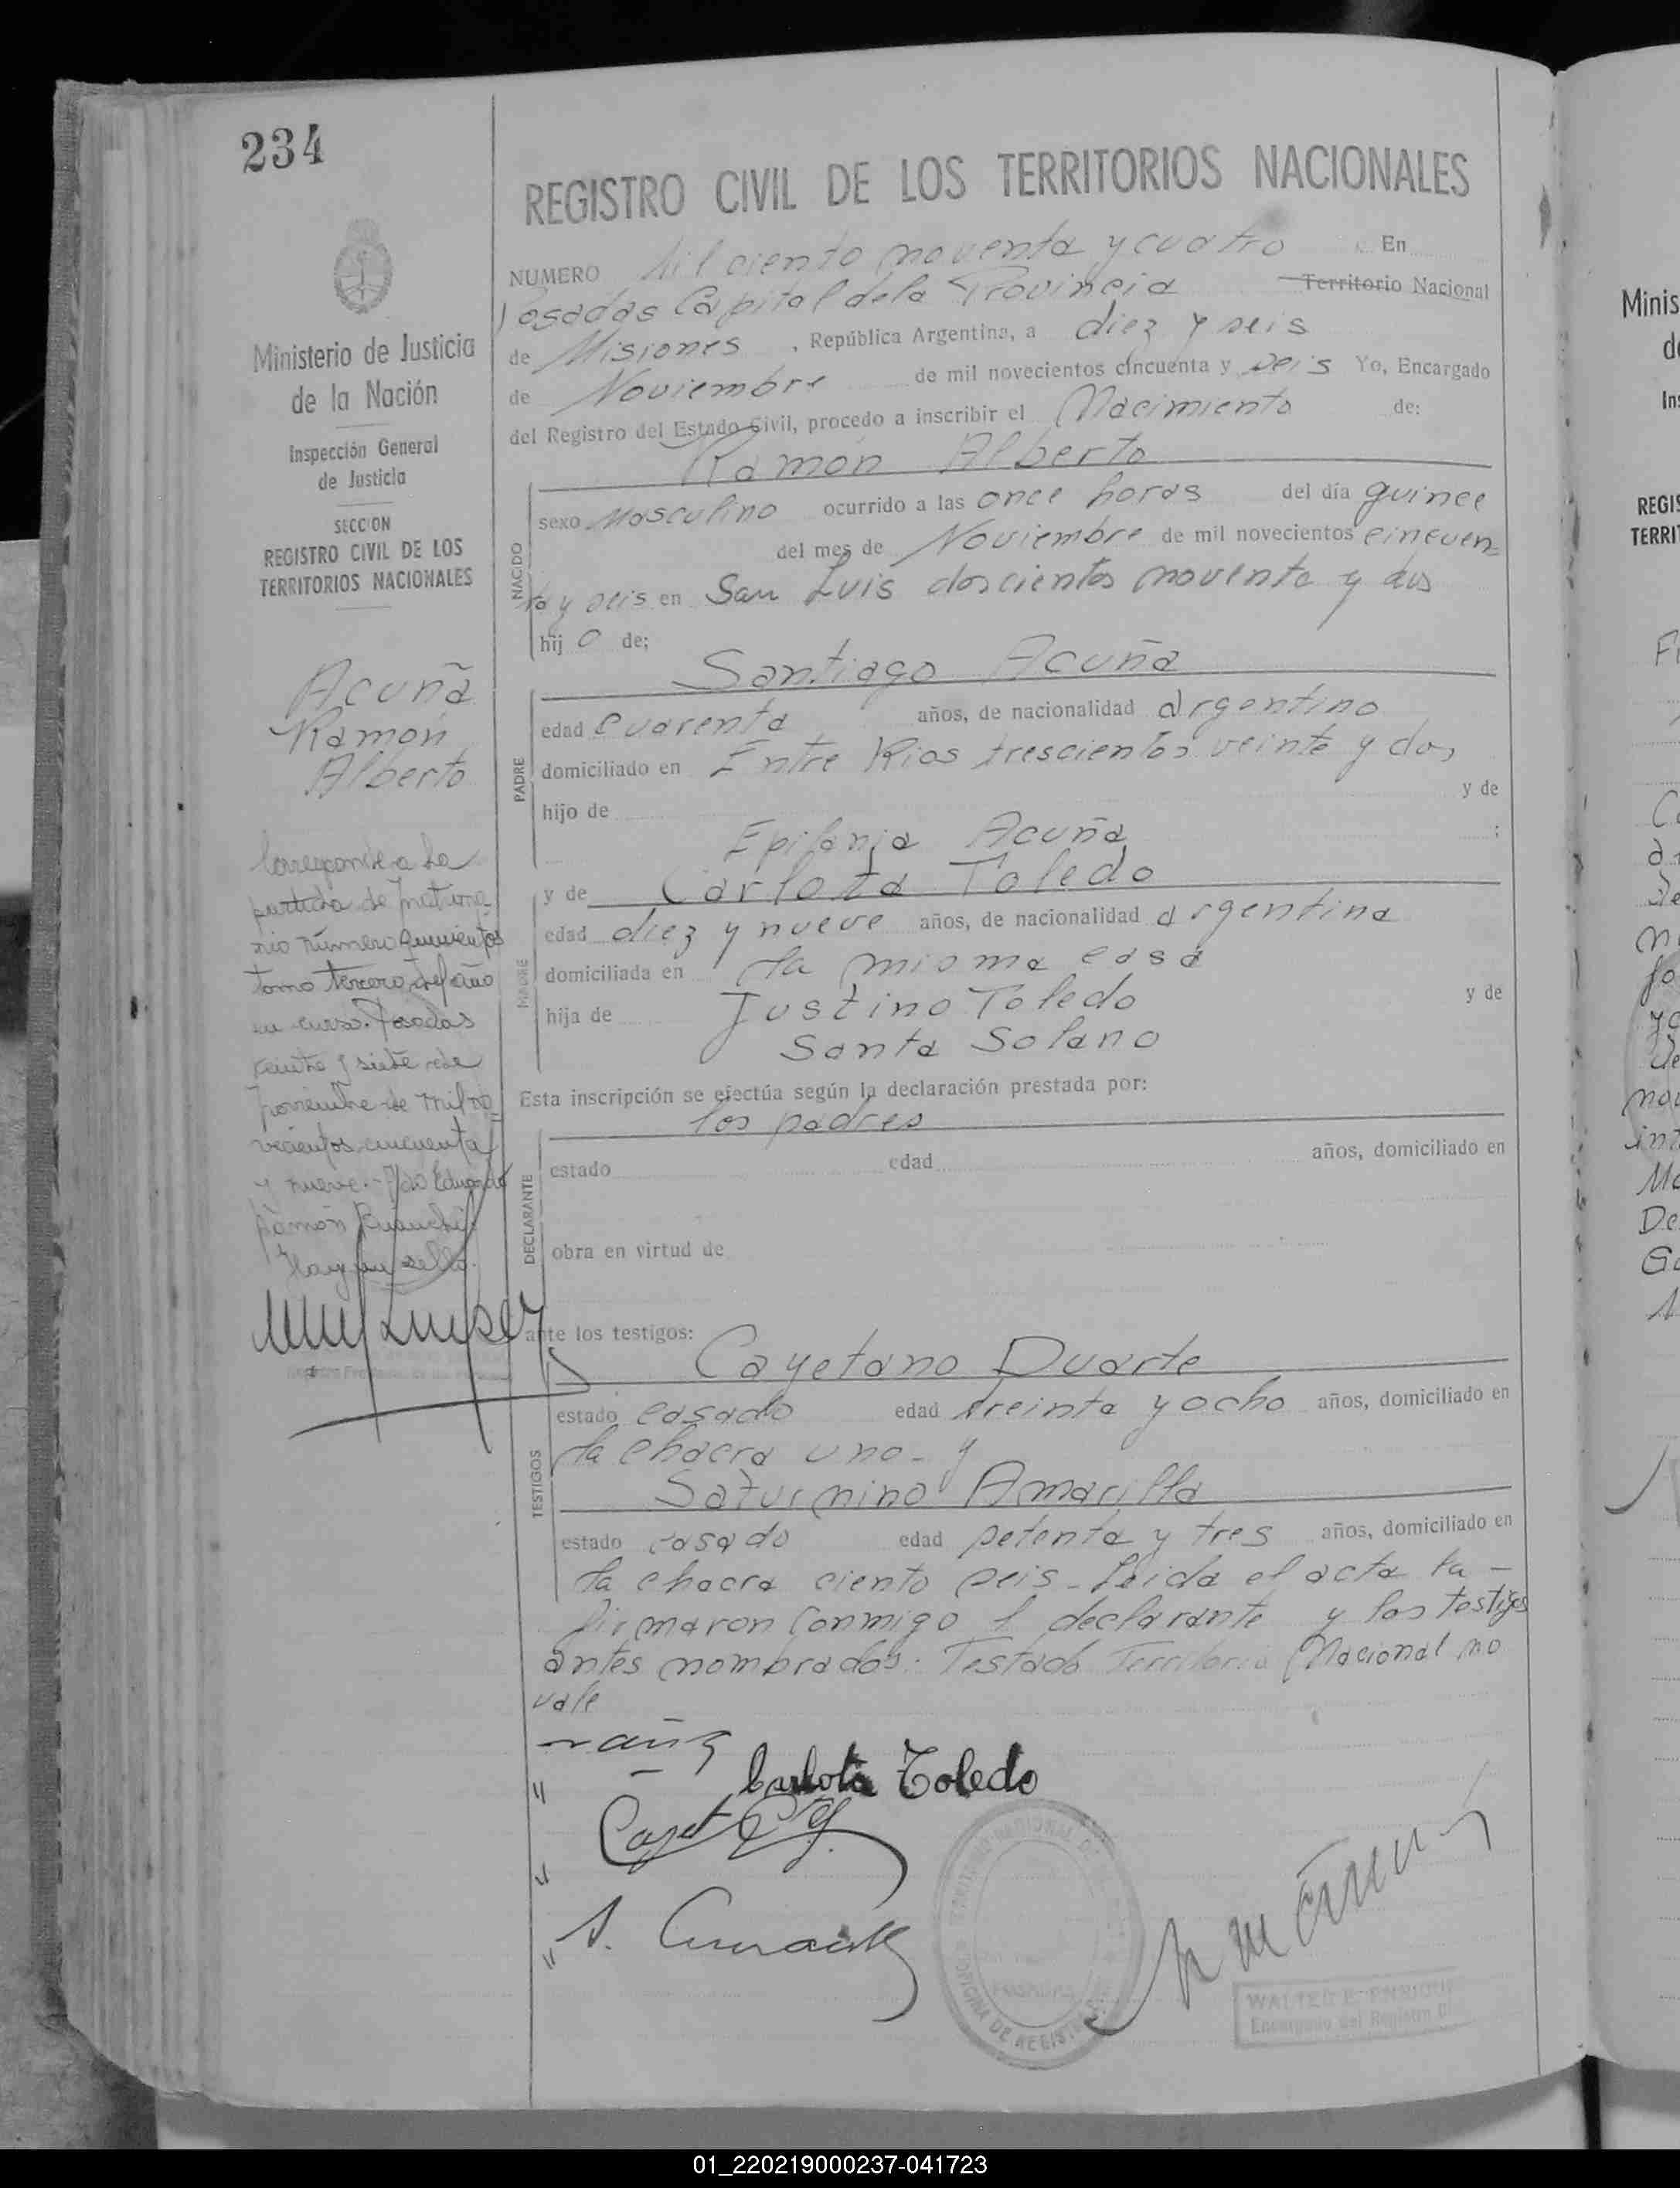 234
REGISTRO CIVIL DE LOS TERRITORIOS NACIONALES
NUMERO Mil ciento noventa y cuatro En
Posadas Capital de la Provincia Territorio Nacional
de Misiones , República Argentina, a diez y seis
de Noviembre de mil novecientos cincuenta y seis Yo, Encargado
del Registro del Estado Civil, procedo a inscribir el Nacimiento de:
Ramón Alberto
NACIDO
sexo Masculino ocurrido a las once horas del día quince
del mes de Noviembre de mil novecientos cincuen=
ta y seis en San Luis doscientos noventa y dos
hij o de;
Santiago Acuña
PADRE
edad cuarenta años, de nacionalidad argentino
domiciliado en Entre Rios trescientos veinte y dos
hijo de y de
Epifania Acuña :
y de Carlota Toledo
MADRE
edad diez y nueve años, de nacionalidad argentina
domiciliada en la misma casa
hija de Justino Toledo y de
Santa Solano
Esta inscripción se efectúa según la declaración prestada por:
los padres
DECLARANTE
estado edad años, domiciliado en
obra en virtud de
ante los testigos:
Cayetano Duarte
TESTIGOS
estado casado edad treinta y ocho años, domiciliado en
la chacra uno - y
Saturnino Amarilla
estado casado edad setenta y tres años, domiciliado en
la chacra ciento seis - Leida el acta la -
firmaron conmigo l declarante y los testigos
antes nombrados: Testado Territorio Nacional no
vale
Carlota Toledo
OFICINA DE REGISTRO
POSADAS
WALTER E. ENRIQUE
Encargado del Registro C
Ministerio de Justicia
de la Nación
Inspección General
de Justicia
SECCION
REGISTRO CIVIL DE LOS
TERRITORIOS NACIONALES
Acuña
Ramón
Alberto
Corresponde a la
partida de matrimo
nio número quinientos
tomo tercero, del año
en curso. Posadas
veinte y siete de
Noviembre de mil no=
vecientos cincuenta
y nueve.- Fdo Eduardo
Ramón Bianchi
Hay un sello.
Minis
REGIS
TERRI
01_220219000237-041723